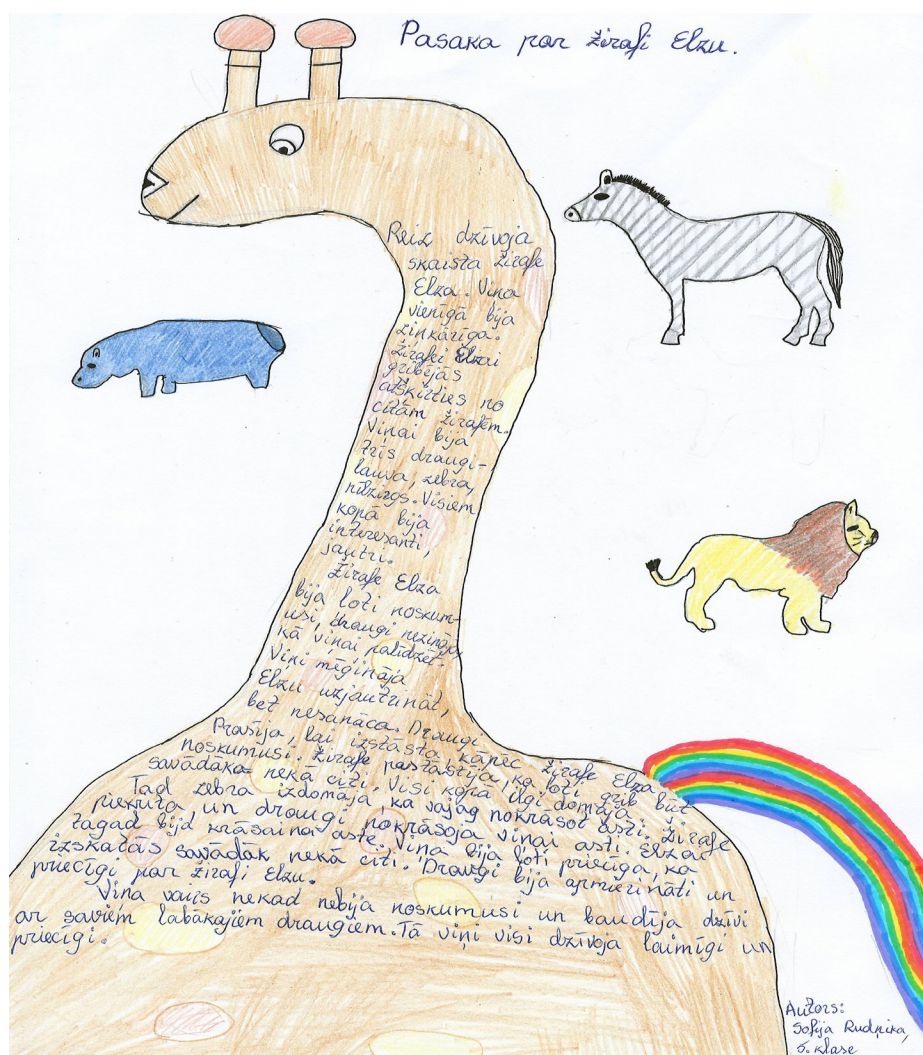 Pasaka par žirafi Elzu.
Reiz dzīvoja
skaista žirafe
Elza. Viņa
vienīgā bija
zinkārīga.
Žirafei Elzai
gribējās
atšķirties no
citām žirafēm.
Viņai bija
trīs draugi-
lauva, zebra,
nīlzirgs. Visiem
kopā bija
interesanti,
jautri.
Žirafe Elza
bija ļoti noskum-
usi, draugi nezināja
kā viņai palīdzēt.
Viņi mēģināja
Elzu uzjautrināt,
bet nesanāca. Draugi
Prasīja, lai izstāsta kāpēc žirafe Elza
noskumusi. Žirafe pastāstīja, ka ļoti grib būt
savādāka nekā citi. Visi kopā ilgi domāja.
Tad zebra izdomāja, ka vajag nokrāsot asti. Žirafe
piekrita un draugi nokrāsoja viņai asti. Elzai
tagad bija krāsaina aste. Viņa bija ļoti priecīga, ka
izskatās savādāk nekā citi. Draugi bija apmierināti un
priecīgi par žirafi Elzu.
Viņa vairs nekad nebija noskumusi un baudīja dzīvi
ar saviem labākajiem draugiem. Tā viņi visi dzīvoja laimīgi un
priecīgi.
Autors:
Sofija Rudņika,
5. klase